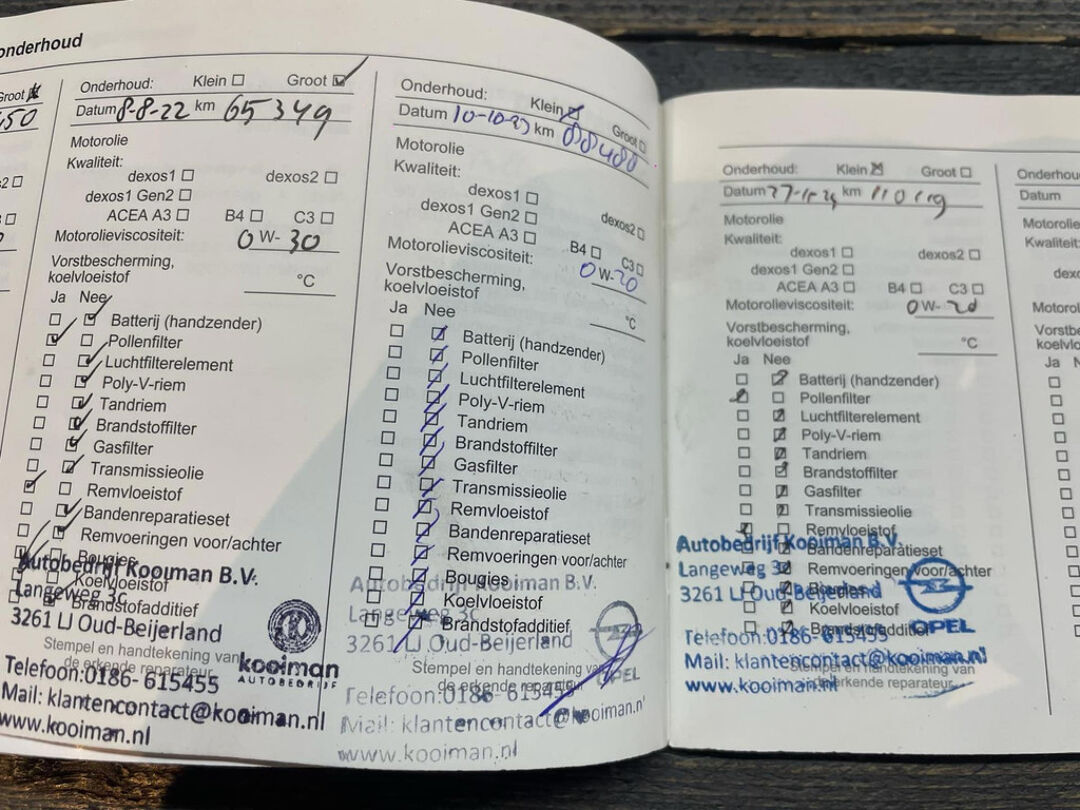 onderhoud
Groot
450
Onderhoud: Klein Groot
Datum 8-8-22 km 65349
Motorolie
Kwaliteit:
dexos1 dexos2
dexos1 Gen2
ACEA A3 B4 C3
Motorolieviscositeit: 0 W- 30
Vorstbescherming,
koelvloeistof °C
Ja Nee
Batterij (handzender)
Pollenfilter
Luchtfilterelement
Poly-V-riem
Tandriem
Brandstoffilter
Gasfilter
Transmissieolie
Remvloeistof
Bandenreparatieset
Remvoeringen voor/achter
Bougies
Koelvloeistof
Brandstofadditief
Autobedrijf Kooiman B.V.
Langeweg 3c
3261 LJ Oud-Beijerland
Stempel en handtekening van
de erkende reparateur
kooiman
AUTOBEDRIJF
Telefoon:0186-615455
Mail: klantencontact@kooiman.nl
www.kooiman.nl
Onderhoud: Klein Groot
Datum 10-10-23 km 88488
Motorolie
Kwaliteit:
dexos1
dexos1 Gen2 dexos2
ACEA A3 B4 C3
Motorolieviscositeit: 0 W-20
Vorstbescherming,
koelvloeistof °C
Ja Nee
Batterij (handzender)
Pollenfilter
Luchtfilterelement
Poly-V-riem
Tandriem
Brandstoffilter
Gasfilter
Transmissieolie
Remvloeistof
Bandenreparatieset
Remvoeringen voor/achter
Bougies
Koelvloeistof
Brandstofadditief
Autobedrijf Kooiman B.V.
Langeweg 3c
3261 LJ Oud-Beijerland
OPEL
Stempel en handtekening van
de erkende reparateur
Telefoon:0186-615455
Mail: klantencontact@kooiman.nl
www.kooiman.nl
Onderhoud: Klein Groot
Datum km
Motorolie
Kwaliteit:
dexos1 dexos2
dexos1 Gen2
ACEA A3 B4 C3
Motorolieviscositeit: 0 W- 20
Vorstbescherming,
koelvloeistof °C
Ja Nee
Batterij (handzender)
Pollenfilter
Luchtfilterelement
Poly-V-riem
Tandriem
Brandstoffilter
Gasfilter
Transmissieolie
Remvloeistof
Bandenreparatieset
Remvoeringen voor/achter
Bougies
Koelvloeistof
Brandstofadditief
Autobedrijf Kooiman B.V.
Langeweg 3c
3261 LJ Oud-Beijerland
OPEL
Telefoon:0186-615455
Mail: klantencontact@kooiman.nl
Stempel en handtekening van
de erkende reparateur
www.kooiman.nl
Onderhou
Datum
Motorolie
Kwaliteit:
dexo
Motorol
Vorstb
koelvlo
Ja N